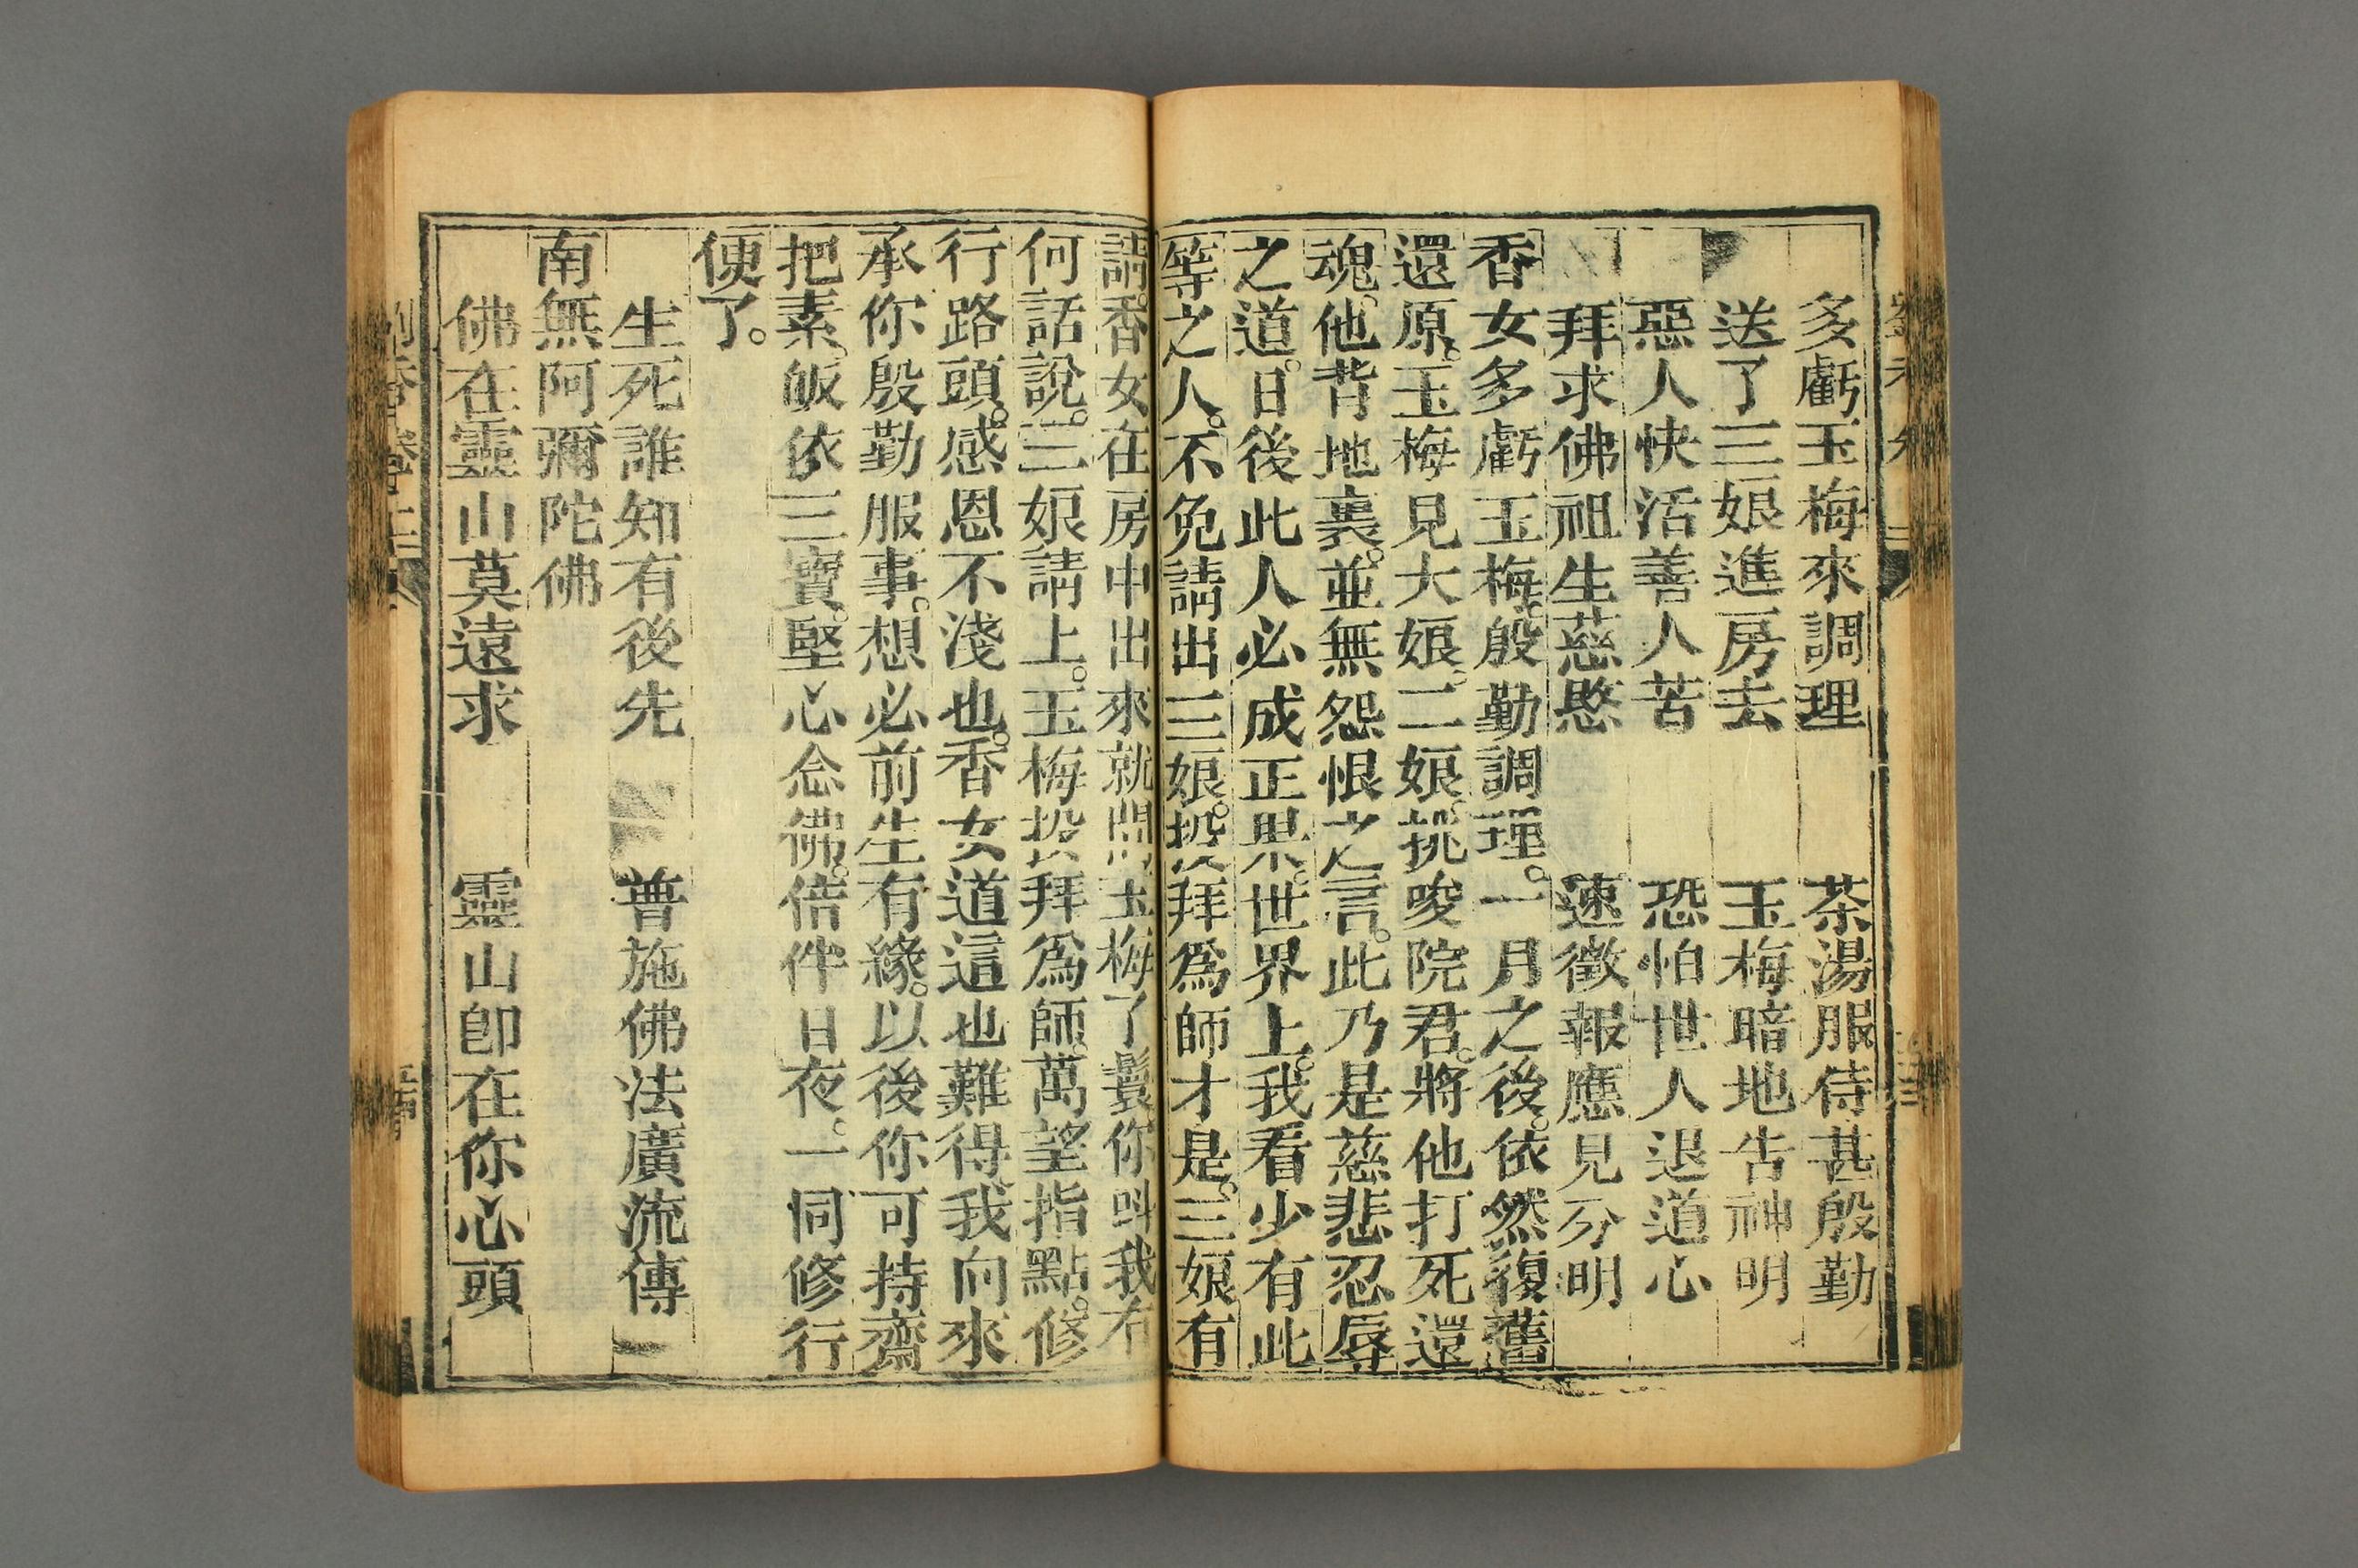 多虧玉梅來調理 茶湯服侍甚殷勤
送了三娘進房去 玉梅暗地告神明
惡人快活善人苦 恐怕世人退道心
拜求佛祖生慈愍 速徵報應見分明
香女多虧玉梅。殷勤調理。一月之後。依然復舊
還原。玉梅見大娘。二娘。挑唆院君。將他打死還
魂。他背地裏。並無怨恨之言。此乃是慈悲忍辱
之道。日後此人必成正果。世界上。我看少有此
等之人。不免請出三娘。投拜爲師才是。三娘有
請。香女在房中出來就問玉梅了鬟你叫我有
何話說。三娘請上。玉梅投拜爲師。萬望指點。修
行路頭。感恩不淺也。香女道這也難得。我向來
承你殷勤服事。想必前生有緣。以後你可持齋
把素。皈依三寶。堅心念佛。倍伴日夜。一同修行
便了。
生死誰知有後先 普施佛法廣流傳
南無阿彌陀佛
佛在靈山莫遠求 靈山卽在你心頭